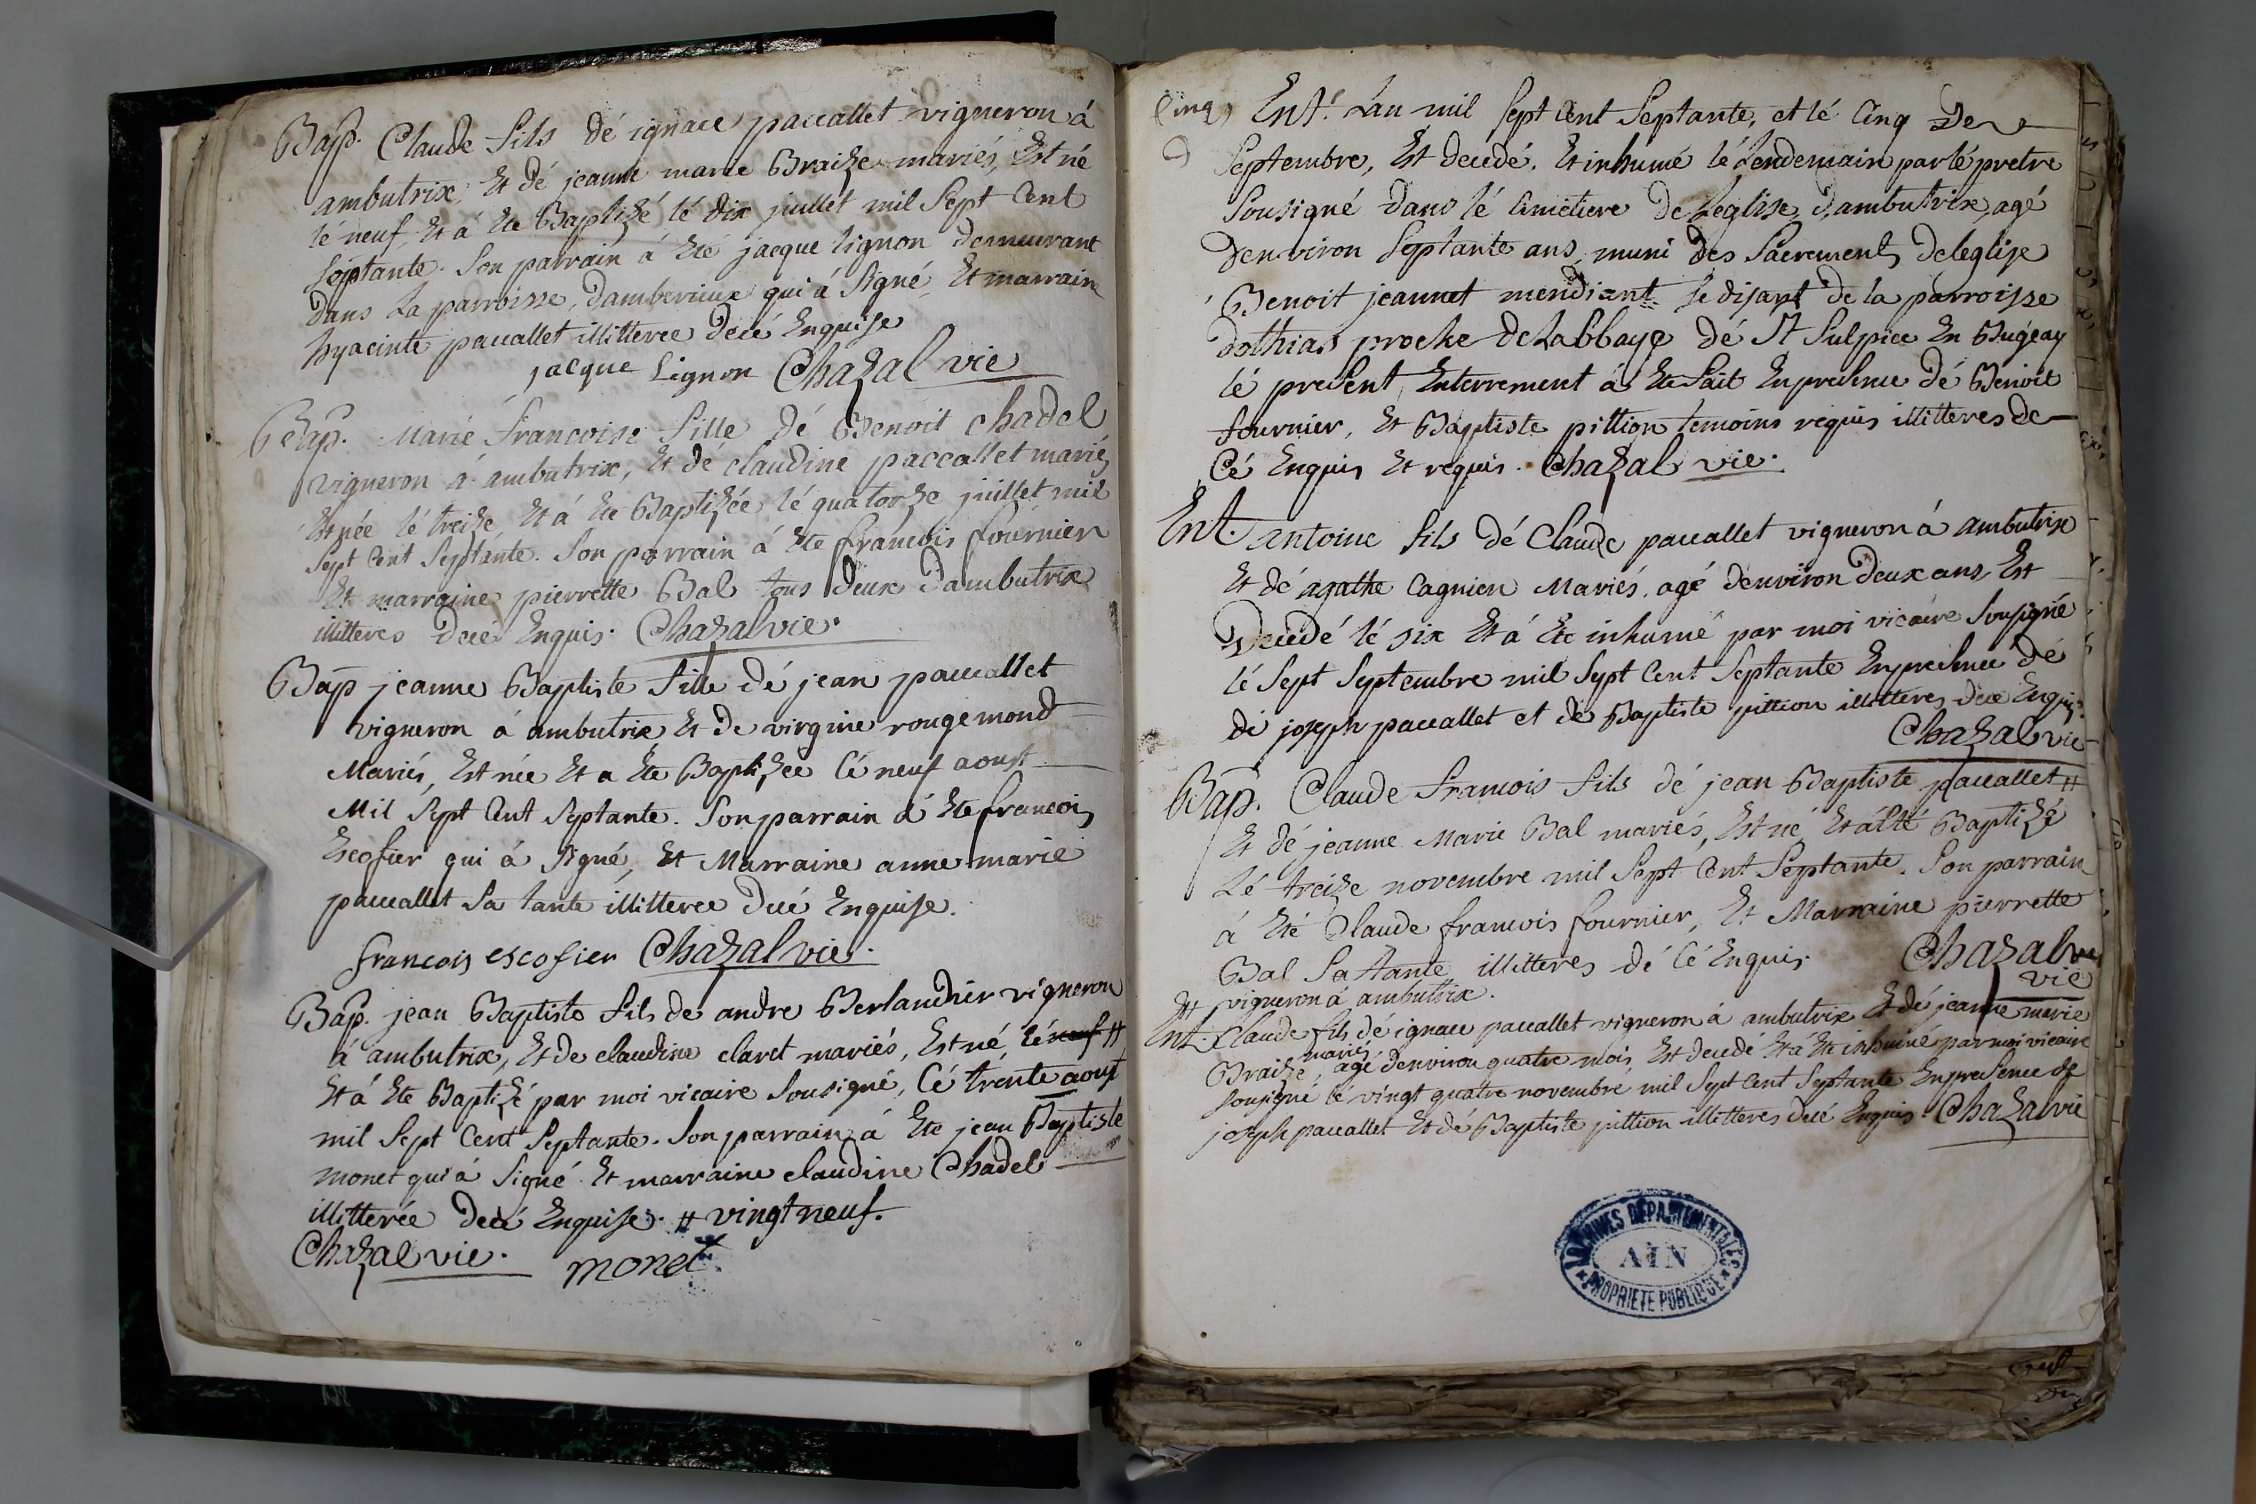 Bap. Claude fils dé ignace paccallet vigneron á
ambutrix, Et dé jeanne marie Braize mariés, Est né
lé neuf, Et á Eté Baptizé lé dix juillet mil Sept Cent
Septante. Son parrain á Eté jacque lignon demeurant
dans La parroisse, damberieux qui á Signé, Et marraine
hyacinte paccallet illitterée decé Enquise
jacque Lignon Chazal vic
Bap. Marie francoise fille dé Benoit chadel
vigneron á ambutrix, Et dé claudine paccallet mariés
Est née lé treize Et á Eté Baptizée lé quatorze juillet mil
Sept Cent Septante. Son parrain á Eté francois fournier
Et marraine pierrette Bal tous deux dambutrix
illitteres decé Enquis. Chazal vic.
Bap jeanne Baptiste fille dé jean paccallet
vigneron á ambutrix Et De virginie rougemond
Mariés, Est née Et a Eté Baptizée lé neuf aoust
Mil Sept Cent Septante. Son parrain á Eté francois
Escofier qui á Signé, Et Marraine anne marie
paccallet Sa tante illitterée decé Enquise.
francois escofier Chazal vic.
Bap. jean Baptiste fils de andre Berlandier vigneron
á ambutrix, Et de claudine claret mariés, Est né lé neuf #
Et á Eté Baptizé par moi vicaire Sousigné, lé trente aoust
mil Sept Cent Septante. Son parrain á Eté jean Baptiste
monet qui á Signé Et marraine claudine Chadel
illitterée decé Enquise. # vingt neuf.
Chazal vic. monet
Cinq Ent. Lan mil Sept Cent Septante, et lé Cinq De
Septembre, Est decedé. Et inhumé lé Lendemain par lé pretre
Sousigné dans lé Cimetiere de Leglise, d'ambutrix, agé
Denviron Septante ans, muni des Sacrements Deleglise
Benoit jeannet mendiant Se disant de la parroisse
dothias proche de Labbaye dé St Sulpice En Bugeay
lé present Enterrement á Eté fait En presence dé Benoit
fournier, Et Baptiste pittion temoins requis illitteres de
Cé Enquis Et requis. Chazal vic.
Ent. antoine fils dé Claude paccallet vigneron á ambutrix
Et dé agathe Cagnien Mariés, agé denviron deux ans, Est
Decedé lé six Et á Eté inhumé par moi vicaire Sousigné
lé Sept Septembre mil Sept Cent Septante En presence dé
dé joseph paccallet et dé Baptiste pittion illitteres decé Enquis.
Chazal vic
Bap. Claude francois fils dé jean Baptiste paccallet #
Et dé jeanne Marie Bal mariés, Est né Et á Eté Baptizé
Lé treize novembre mil Sept Cent Septante. Son parrain
á Eté Claude francois fournier, Et Marraine pierrette
Bal Sa tante illitteres dé Cé Enquis Chazal vic
vic
# vigneron á ambutrix.
Ent. Claude fils dé ignace paccallet vigneron á ambutrix Et dé jeanne marie
mariés
Braize, agé denviron quatre mois, Est decedé Et a Eté inhumé par moi vicaire
Sousigné lé vingt quatre novembre mil Sept Cent Septante En presence de
joseph paccallet Et dé Baptiste pittion illitteres decé Enquis. Chazal vic
ARCHIVES DÉPARTEMENTALES
AIN
PROPRIÉTÉ PUBLIQUE